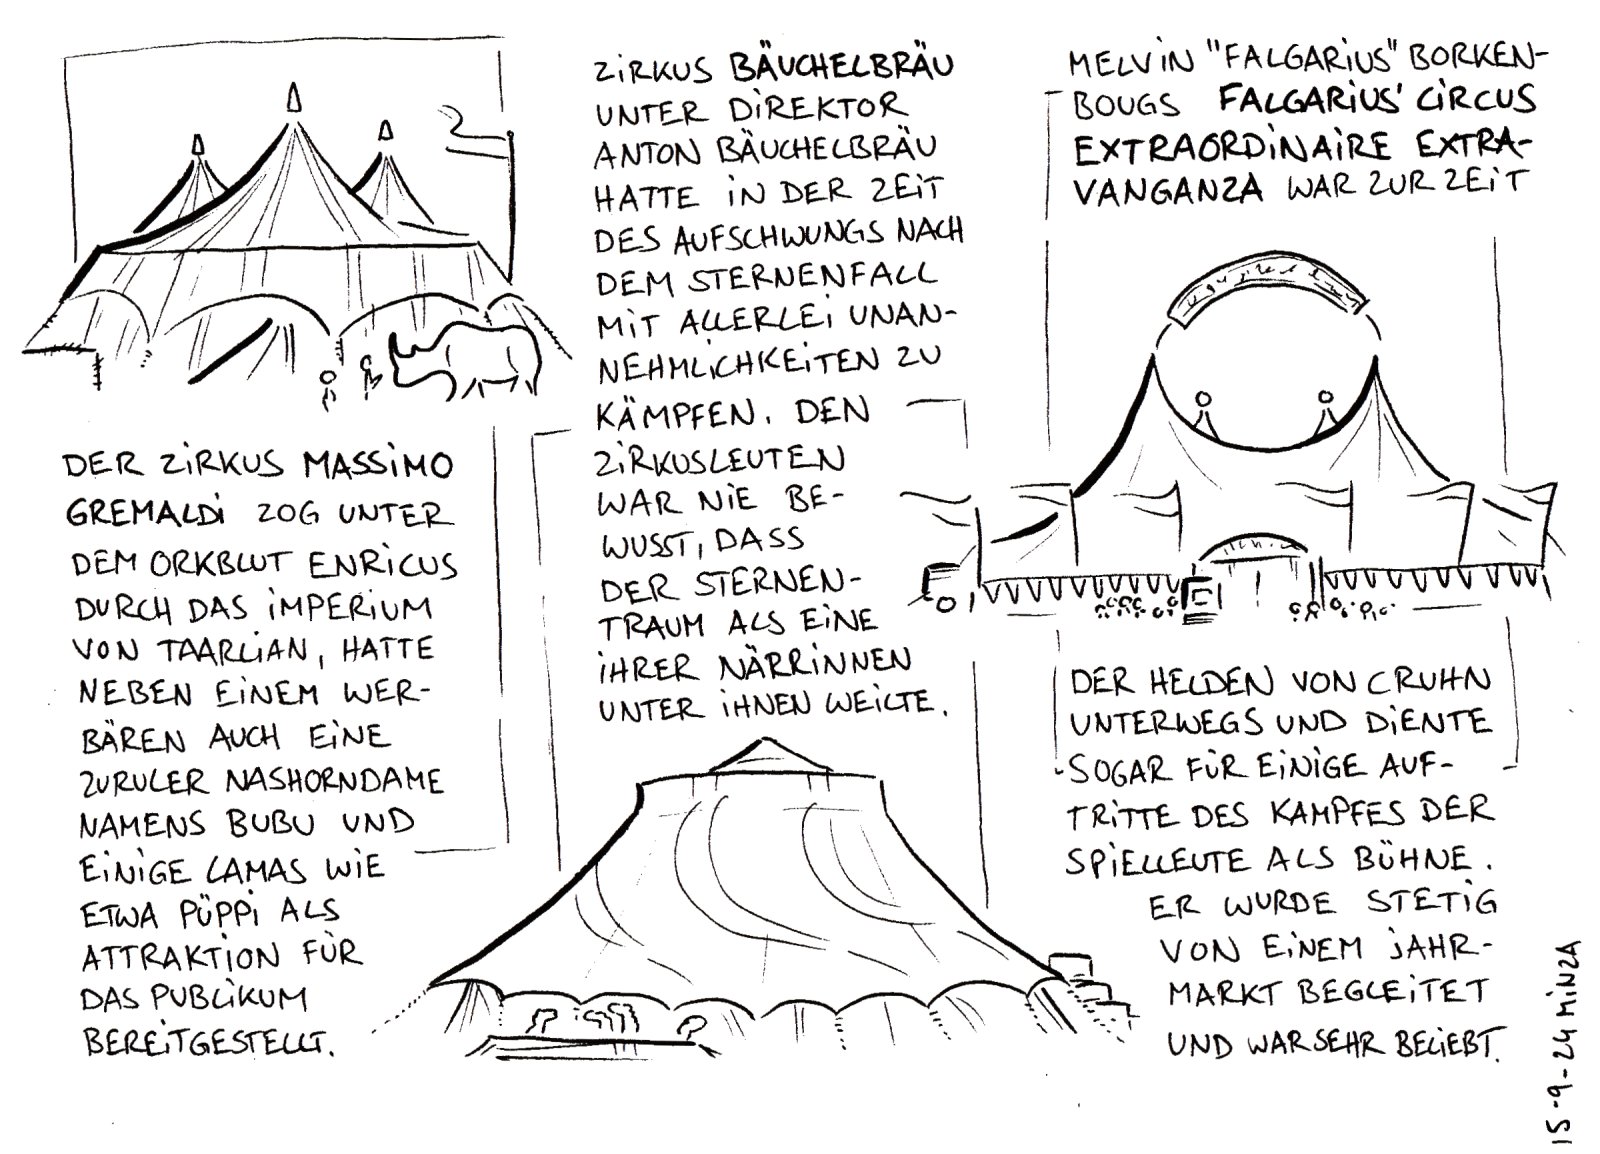 DER ZIRKUS MASSIMO
GREMALDI ZOG UNTER
DEM ORKBLUT ENRICUS
DURCH DAS IMPERIUM
VON TAARLIAN, HATTE
NEBEN EINEM WER-
BÄREN AUCH EINE
ZURULER NASHORNDAME
NAMENS BUBU UND
EINIGE LAMAS WIE
ETWA PÜPPI ALS
ATTRAKTION FÜR
DAS PUBLIKUM
BEREITGESTELLT.
ZIRKUS BÄUCHELBRÄU
UNTER DIREKTOR
ANTON BÄUCHELBRÄU
HATTE IN DER ZEIT
DES AUFSCHWUNGS NACH
DEM STERNENFALL
MIT ALLERLEI UNAN-
NEHMLICHKEITEN ZU
KÄMPFEN. DEN
ZIRKUSLEUTEN
WAR NIE BE-
WUSST, DASS
DER STERNEN-
TRAUM ALS EINE
IHRER NÄRRINNEN
UNTER IHNEN WEILTE.
MELVIN "FALGARIUS" BORKEN-
BOUGS FALGARIUS' CIRCUS
EXTRAORDINAIRE EXTRA-
VANGANZA WAR ZUR ZEIT
DER HELDEN VON CRUHN
UNTERWEGS UND DIENTE
SOGAR FÜR EINIGE AUF-
TRITTE DES KAMPFES DER
SPIELLEUTE ALS BÜHNE.
ER WURDE STETIG
VON EINEM JAHR-
MARKT BEGLEITET
UND WAR SEHR BELIEBT.
15-9-24 MINZA